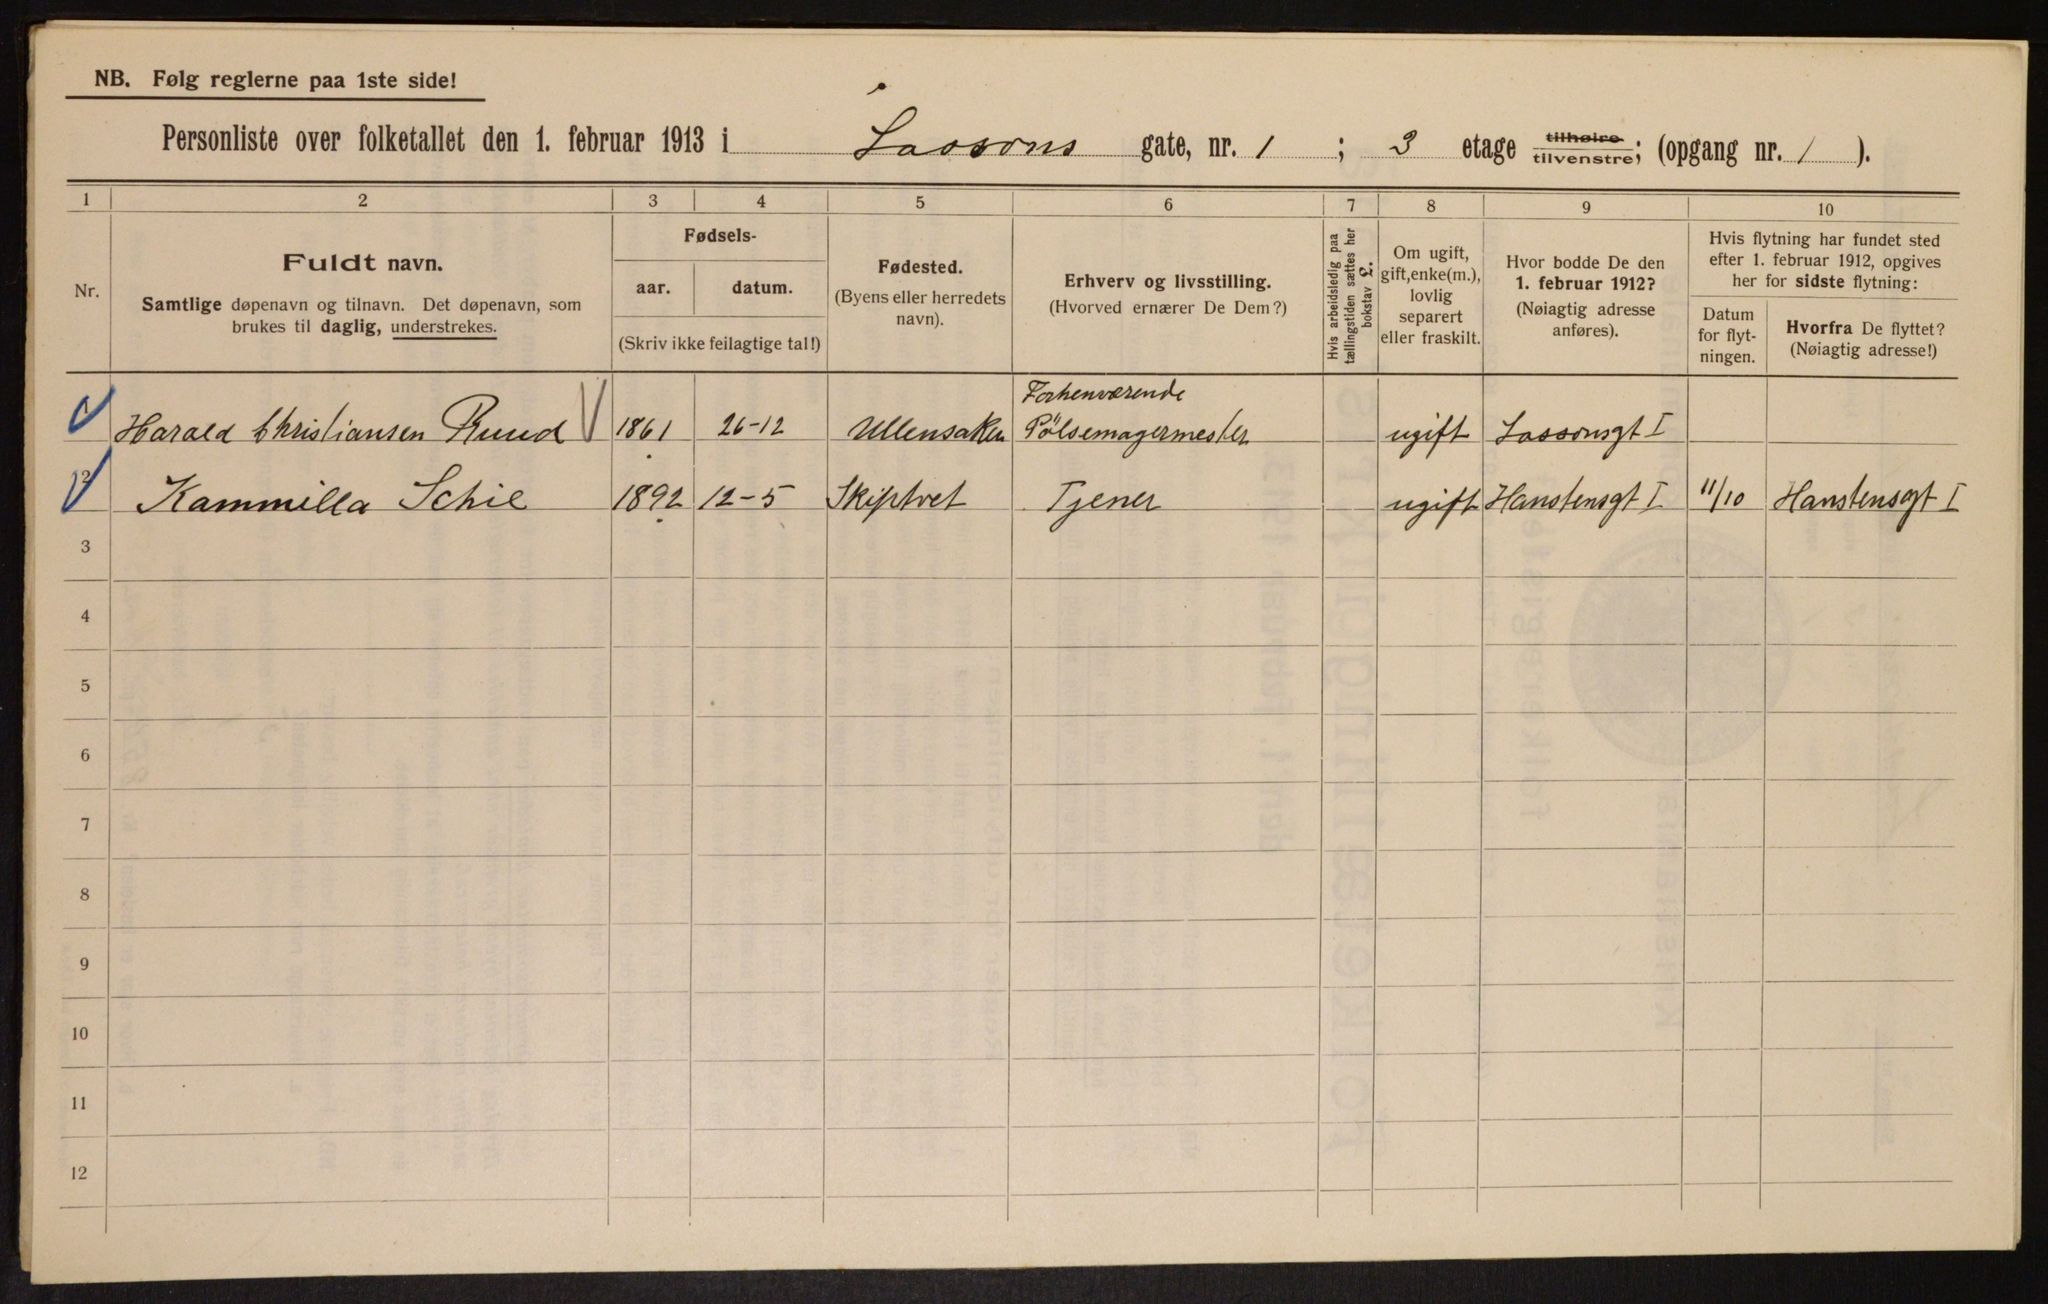 NB. Følg reglerne paa 1ste side!
Personliste over folketallet den 1. februar 1913 i Lassons gate, nr. 1 ; 3 etage tilhøire tilvenstre; (opgang nr. 1 ).
1 2 3 4 5 6 7 8 9 10
Nr.
Fuldt navn.
Samtlige døpenavn og tilnavn. Det døpenavn, som
brukes til daglig, understrekes.
Fødsels-
aar. datum.
(Skriv ikke feilagtige tal!)
Fødested.
(Byens eller herredets
navn).
Erhverv og livsstilling.
(Hvorved ernærer De Dem?)
Hvis arbeidsledig paa
tællingstiden sættes her
bokstav L.
Om ugift,
gift, enke(m.),
lovlig
separert
eller fraskilt.
Hvor bodde De den
1. februar 1912?
(Nøiagtig adresse
anføres).
Hvis flytning har fundet sted
efter 1. februar 1912, opgives
her for sidste flytning:
Datum
for flyt-
ningen.
Hvorfra De flyttet?
(Nøiagtig adresse!)
Forhenværende
Harald Christiansen Ruud 1861 26-12 Ullensaker Pölsemagermester ugift Lassonsgt I
2 Kammilla Schie 1892 12-5 Skiptvet Tjener ugift Hanstensgt I 11/10 Hanstensgt I
3
4
5
6
7
8
9
10
11
12